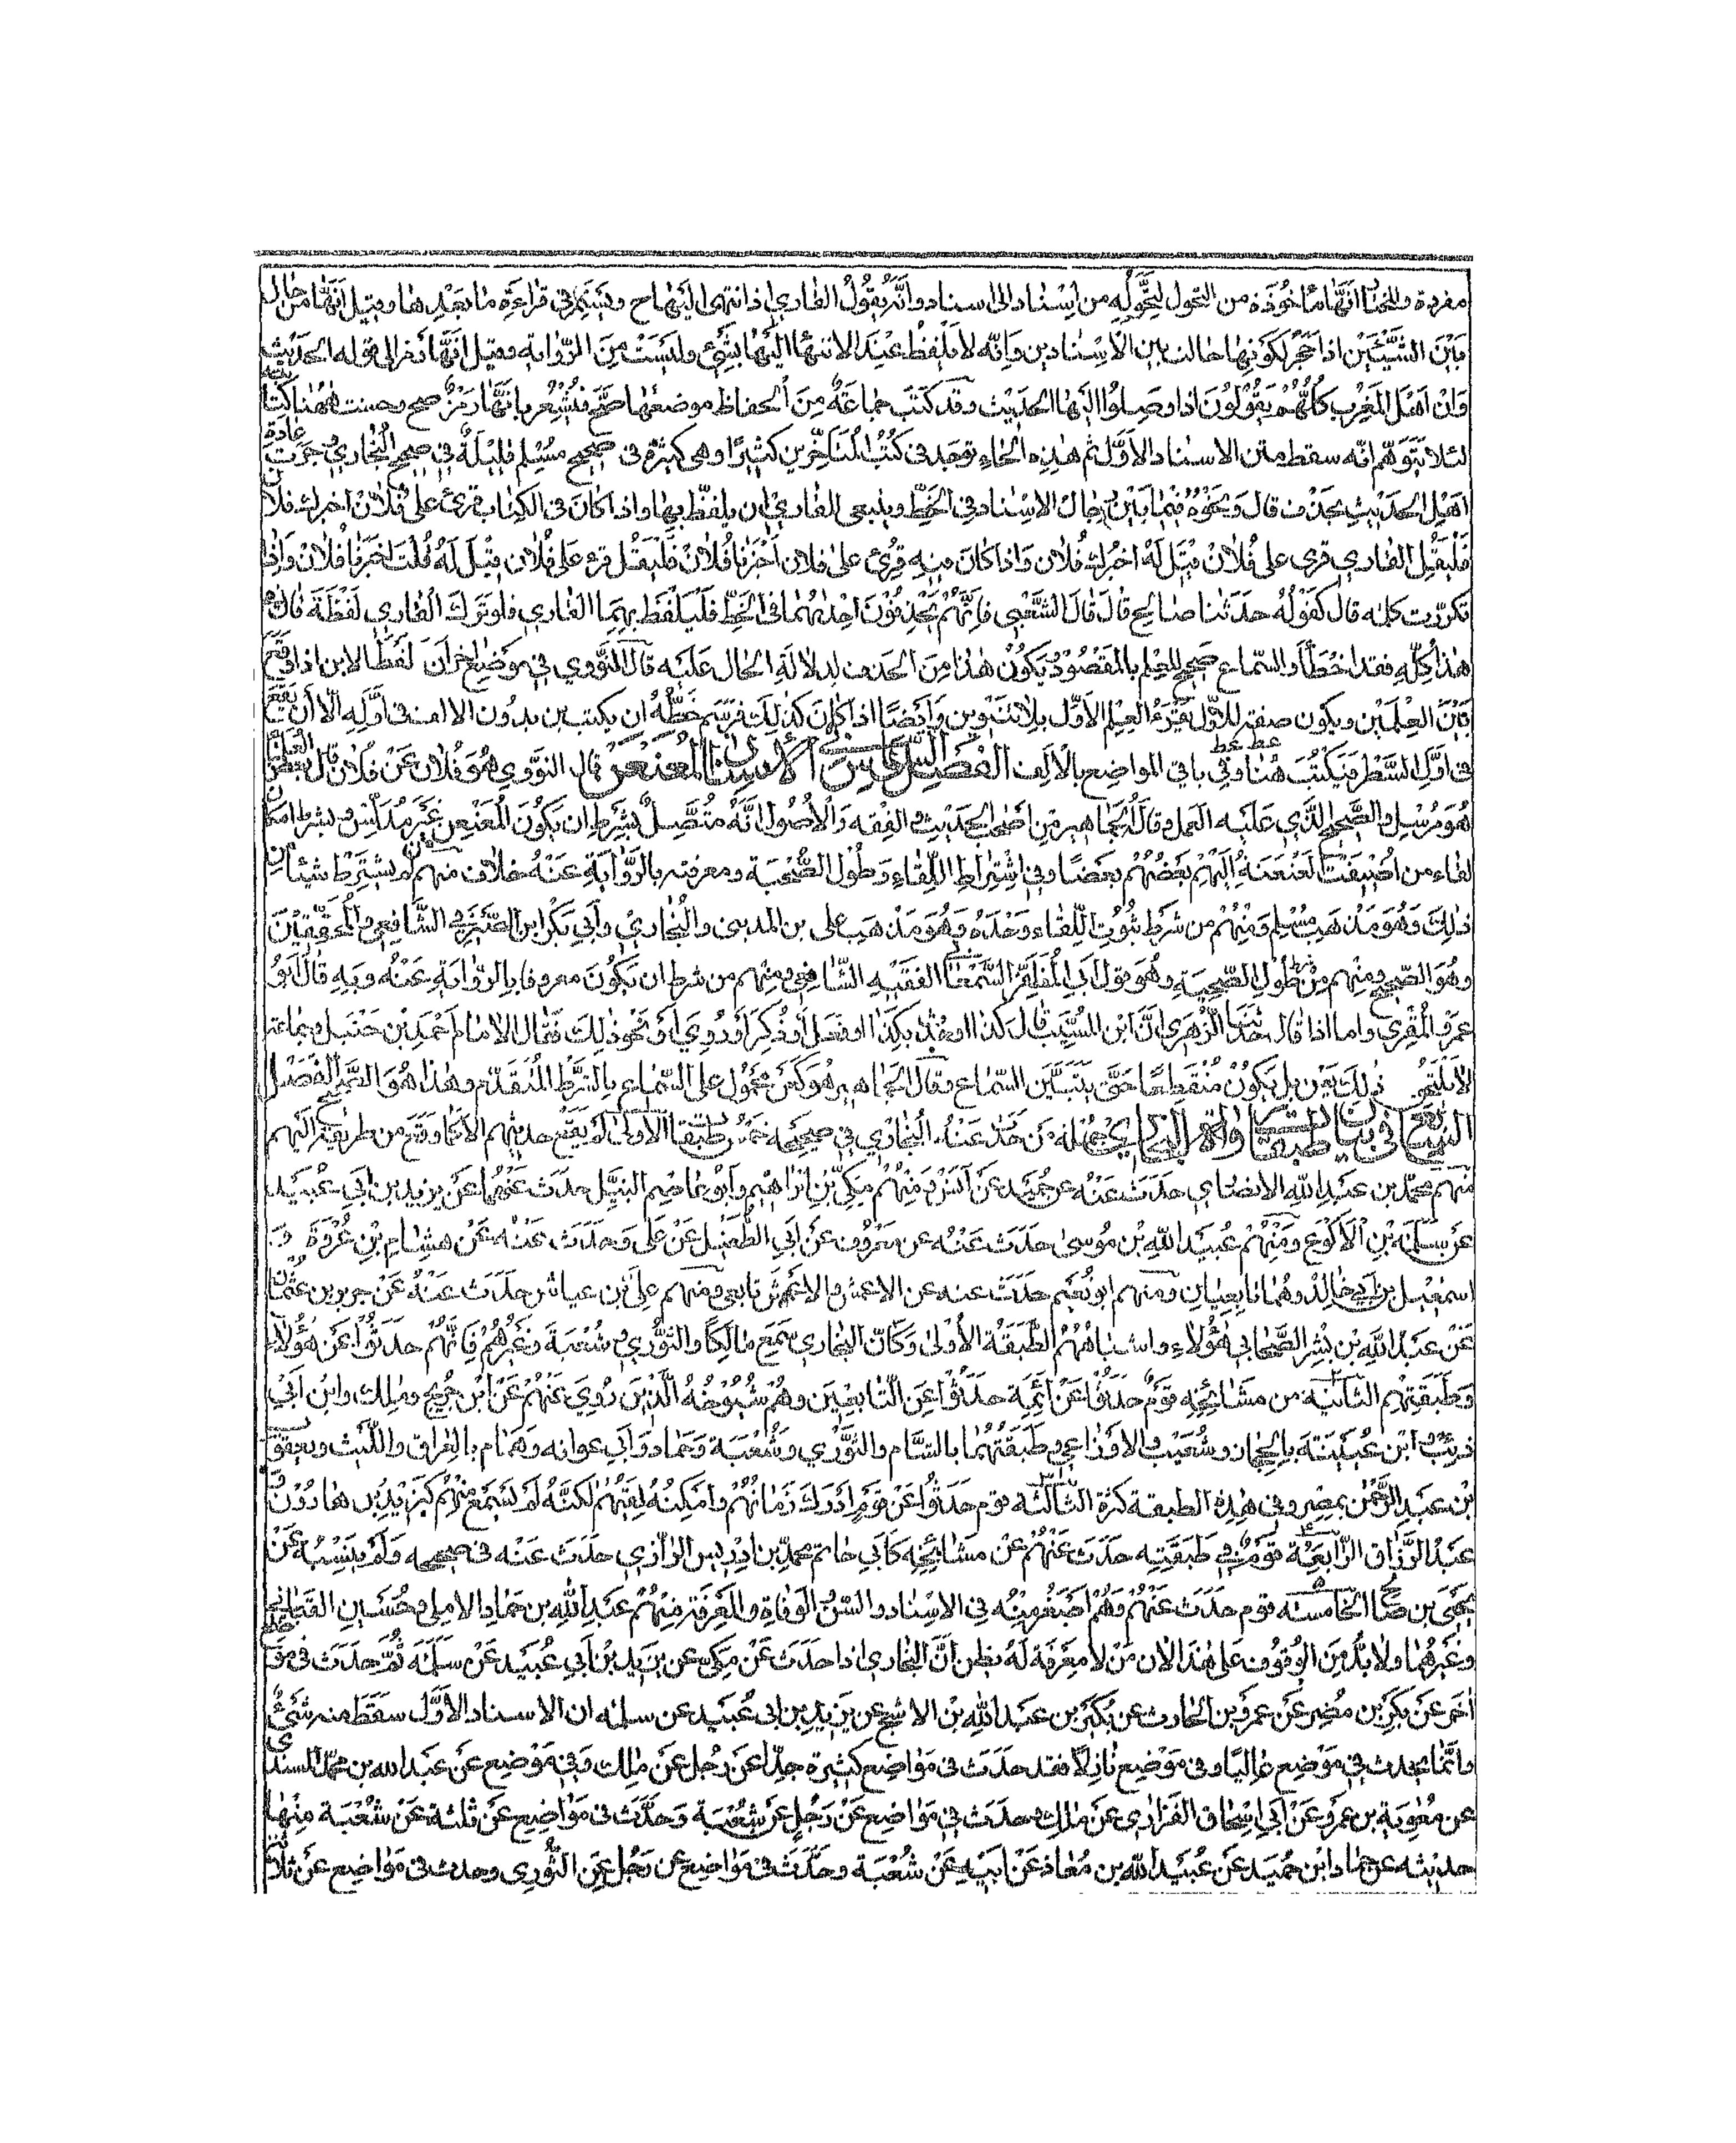 مفردة والمختار انها ماخوذة من التحول لتحوله من اسناد الى اسناد وانه يقول القاري اذا انتهى اليها ح ويستمر في قراءة ما بعدها وقيل انها من حال
بين الشيئين اذا حجز لكونها حالت بين الاسنادين وانه لا يلفظ عند الانتهاء اليها بشيء وليست من الرواية وقيل انها رمز الى قوله الحديث
وان اهل المغرب كلهم يقولون اذا وصلوا اليها الحديث وقد كتب جماعة من الحفاظ موضعها صح فيشعر بانها رمز صح وحسنت ههنا كتابة صح
لئلا يتوهم انه سقط متن الاسناد الاول ثم هذه الحاء توجد في كتب المتاخرين كثيرا وهي كثيرة في صحيح مسلم قليلة في صحيح البخاري جرت عادة
اهل الحديث بحذف قال ونحوه فيما بين رجال الاسناد في الخط وينبغي للقاري ان يلفظ بها واذا كان في الكتاب قرئ على فلان اخبرك فلان
فليقل القاري قرئ على فلان قيل له اخبرك فلان واذا كان فيه قرئ على فلان اخبرنا فلان فليقل قرئ على فلان قيل له قلت اخبرنا فلان واذا
تكررت كلمة قال كقوله حدثنا صالح قال قال الشعبي فانهم يحذفون احدىهما في الخط فليلفظ بهما القاري فلو ترك القاري لفظة قال في
هذا كله فقد اخطأ والسماع صحيح للعلم بالمقصود ويكون هذا من الحذف لدلالة الحال عليه قال النووي في موضع اخر ان لفظ الابن اذا وقع
بين العلمين ويكون صفة للاول يقرء العلم الاول بلا تنوين وايضا اذا كان كذلك فرسم خطه ان يكتب بن بدون الالف في اوله الا ان يقع
في اول السطر فيكتب هنا وفي باقي المواضع بالالف الفصل السادس الاسناد المعنعن قال النووي هو فلان عن فلان قال بعض العلماء
هو مرسل والصحيح الذي عليه العمل وقاله الجماهير من اصحاب الحديث والفقه والاصول انه متصل بشرط ان يكون المعنعن غير مدلس وبشرط امكان
لقاء من اضيفت العنعنة اليهم بعضهم بعضا وفي اشتراط اللقاء وطول الصحبة ومعرفته بالرواية عنه خلاف منهم من لم يشترط شيئا من
ذلك وهو مذهب مسلم ومنهم من شرط ثبوت اللقاء وحده وهو مذهب علي بن المديني والبخاري وابي بكر الصيرفي الشافعي والمحققين
وهو الصحيح ومنهم من شرط طول الصحبة وهو قول ابي المظفر السمعاني الفقيه الشافعي ومنهم من شرط ان يكون معروفا بالرواية عنه وبه قال ابو
عمرو المقري واما اذا قال حدثنا الزهري ان ابن المسيب قال كذا او حدث بكذا او فعل او ذكر او روي او نحو ذلك فقال الامام احمد بن حنبل وجماعة
لا يلتحق ذلك بعن بل يكون منقطعا حتى يتبين السماع وقال الجماهير هو كعن محمول على السماع بالشرط المتقدم وهذا هو الصحيح الفصل
السابع في بيان طبقات البخاري جملة من حدث عنه البخاري في صحيحه خمس طبقات الاولى لم يقع حديثهم الا كما وقع من طريقه اليهم
منهم محمد بن عبد الله الانصاري حدث عنه عن حميد عن انس ومنهم مكي بن ابراهيم وابو عاصم النبيل حدث عنهما عن يزيد بن ابي عبيد
عن سلمة بن الاكوع ومنهم عبيد الله بن موسى حدث عنه عن معروف عن ابي الطفيل عن علي وحدث عنه عن هشام بن عروة و
اسمعيل بن ابي خالد وهما تابعيان ومنهم ابو نعيم حدث عنه عن الاعمش والاعمش تابعي ومنهم علي بن عياش حدث عنه عن حريز بن عثمان
عن عبد الله بن بشر الصحابي هؤلاء واشباههم الطبقة الاولى وكان البخاري سمع مالكا والثوري وشعبة وغيرهم فانهم حدثوا عن هؤلاء
وطبقتهم الثانية من مشائخه قوم حدثوا عن ائمة حدثوا عن التابعين وهم شيوخه الذين روي عنهم عن ابن جريج ومالك وابن ابي
ذئب وابن عيينة بالحجاز وشعيب والاوزاعي وطبقتهما بالشام والثوري وشعبة وحماد وابي عوانه وهمام بالعراق والليث ويعقوب
بن عبد الرحمن بمصر وفي هذه الطبقة كثرة الثالثة قوم حدثوا عن قوم ادرك زمانهم وامكنه لقيهم لكنه لم يسمع منهم كيزيد بن هارون و
عبد الرزاق الرابعة قوم في طبقته حدث عنهم عن مشائخه كابي حاتم محمد بن ادريس الرازي حدث عنه في صحيحه ولم ينسبه عن
يحيى بن صالح الخامسة قوم حدث عنهم وهم اصغر منه في الاسناد والسن والوفاة والمعرفة منهم عبد الله بن حماد الاملي وحسين القباني
وغيرهما ولا بد من الوقوف على هذا لان من لا معرفة له يظن ان البخاري اذا حدث عن مكي عن يزيد بن ابي عبيد عن سلمة ثم حدث في موضع
اخر عن بكر بن مضر عن عمرو بن الحارث عن بكير بن عبد الله بن الاشج عن يزيد بن ابي عبيد عن سلمة ان الاسناد الاول سقط منه شيء
وانما يحدث في موضع عاليا وفي موضع نازلا فقد حدث في مواضع كثيرة جدا عن رجل عن مالك وفي موضع عن عبد الله بن محمد المسندي
عن معوية بن عمرو عن ابي اسحاق الفزاري عن مالك وحدث في مواضع عن رجل عن شعبة وحدث في مواضع عن ثلثة عن شعبة منها
حديثه عن حماد ابن حميد عن عبيد الله بن معاذ عن ابيه عن شعبة وحدث في مواضع عن رجل عن الثوري وحدث في مواضع عن ثلاثة